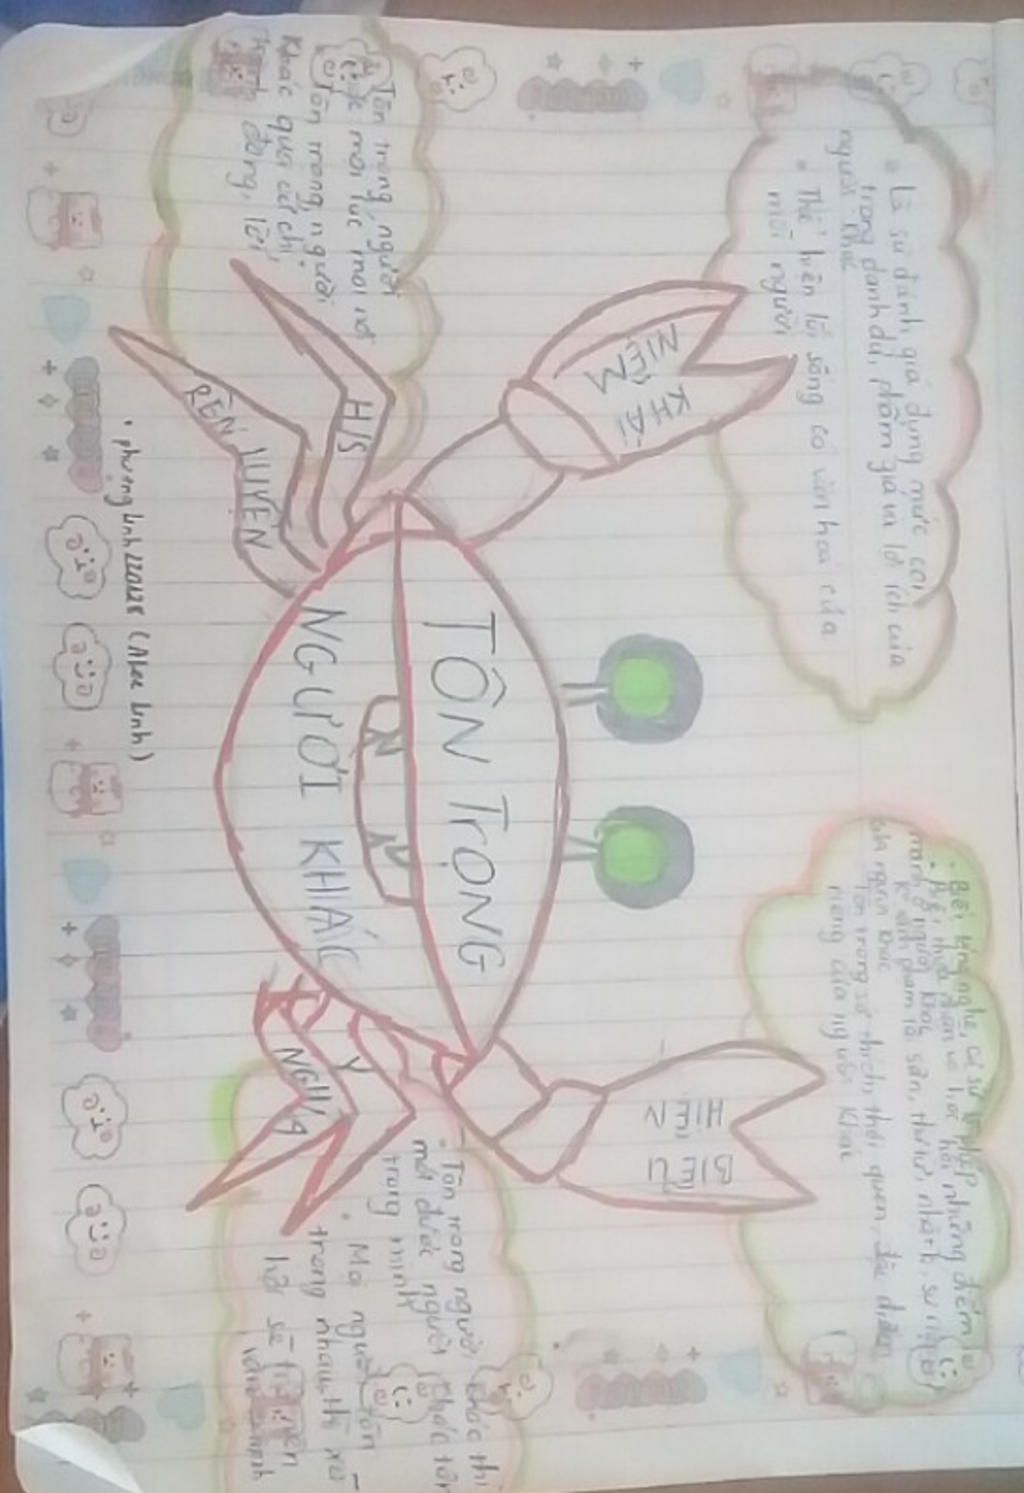 • Là sự đánh giá đúng mực, coi
trọng danh dự, phẩm giá và lợi ích của
người khác
• Thể hiện lối sống có văn hoá của
mỗi người
KHÁI
NIỆM
• Biết lắng nghe, cư sử lễ phép
• Biết thừa nhận và học hỏi những điểm
mạnh ở người khác
K xâm phạm tài sản, thư từ, nhật kí, sự riêng
của người khác
Tôn trọng sở thích, thói quen, đặc điểm
riêng của người khác
BIỂU
HIỆN
TÔN TRỌNG
NGƯỜI KHÁC
Tôn trọng người
khác mọi lúc mọi nơi
Tôn trọng người
khác qua cử chỉ,
hành động, lời
H/S
RÈN LUYỆN
Ý
NGHĨA
• Tôn trọng người khác thì
mới được người khác tôn
trọng mình
• Mọi người tôn
trọng nhau thì xã
hội sẽ trở nên
văn minh
• phuonglinh220128 (Alee Linh)